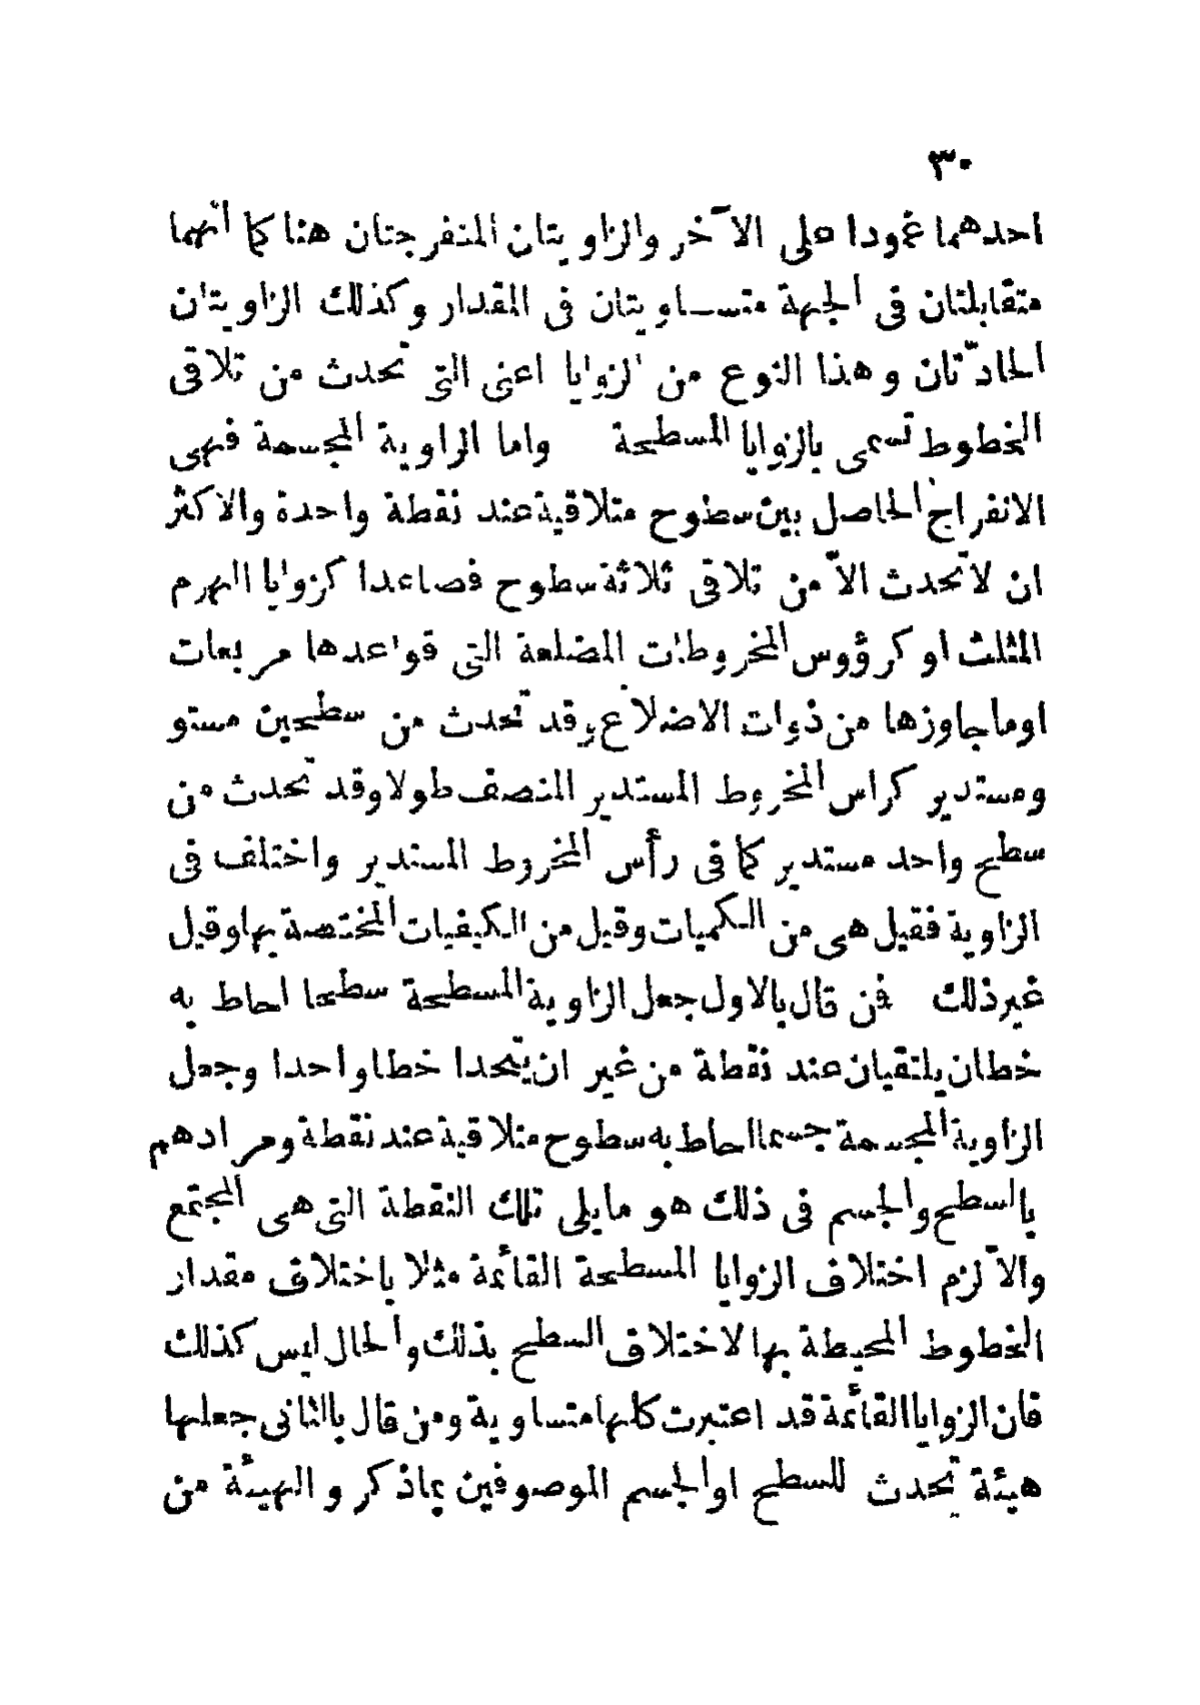 ٣٠
احدهما عمودا على الآخر والزاويتان المنفرجتان هنا كما أنهما
متقابلتان فى الجهة متساويتان فى المقدار وكذلك الزاويتان
الحادّتان وهذا النوع من الزوايا اعنى التى تحدث من تلاقى
الخطوط تسمى بالزوايا المسطحة واما الزاوية المجسمة فهى
الانفراج الحاصل بين سطوح متلاقية عند نقطة واحدة والاكثر
ان لا تحدث الاّ من تلاقى ثلاثة سطوح فصاعدا كزوايا الهرم
المثلث او كرؤوس المخروطات المضلعة التى قواعدها مربعات
اوما جاوزها من ذوات الاضلاع وقد تحدث من سطحين مستو
ومستدير كراس المخروط المستدير المنصف طولا وقد تحدث من
سطح واحد مستدير كما فى رأس المخروط المستدير واختلف فى
الزاوية فقيل هى من الكميات وقيل من الكيفيات المختصة بها وقيل
غير ذلك فمن قال بالاول جعل الزاوية المسطحة سطحا احاط به
خطان يلتقيان عند نقطة من غير ان يتحدا خطا واحدا وجعل
الزاوية المجسمة جسما احاط به سطوح متلاقية عند نقطة ومرادهم
بالسطح والجسم فى ذلك هو مايلى تلك النقطة التى هى المجتمع
والاّ لزم اختلاف الزوايا المسطحة القائمة مثلا باختلاف مقدار
الخطوط المحيطة بها لاختلاف السطح بذلك والحال ليس كذلك
فان الزوايا القائمة قد اعتبرت كلها متساوية ومن قال بالثانى جعلها
هيئة تحدث للسطح او الجسم الموصوفين بماذكر والهيئة من